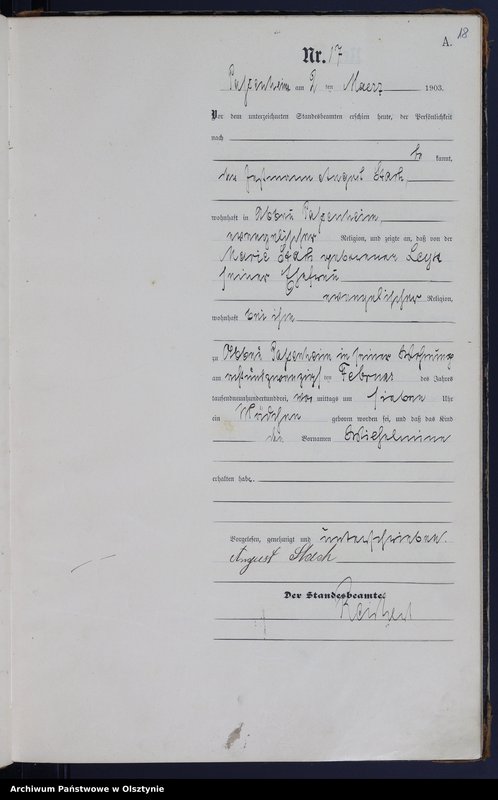 18
A.
Nr. 17
Passenheim am 2 ten Maerz 1903.
Vor dem unterzeichneten Standesbeamten erschien heute, der Persönlichkeit
nach
be kannt,
der August Stach,
wohnhaft in Abbau Passenheim,
evangelischer Religion, und zeigte an, daß von der
Marie Stach geborenen
seiner Ehefrau
evangelischer Religion,
wohnhaft bei ihm
zu Abbau Passenheim in seiner Wohnung
am achtundzwanzigsten Februar des Jahres
tausendneunhundertunddrei, vor mittags um sieben Uhr
ein Mädchen geboren worden sei, und daß das Kind
die Vornamen Wilhelmine
erhalten habe.
Vorgelesen, genehmigt und unterschrieben
August Stach
Der Standesbeamte.
Archiwum Państwowe w Olsztynie